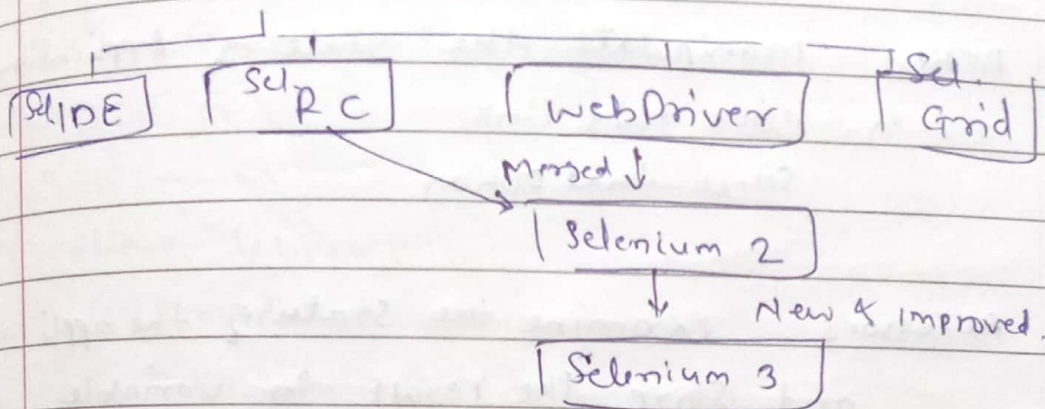 Sel IDE
Sel RC
WebDriver
Sel Grid
Merged
Selenium 2
New & improved.
Selenium 3